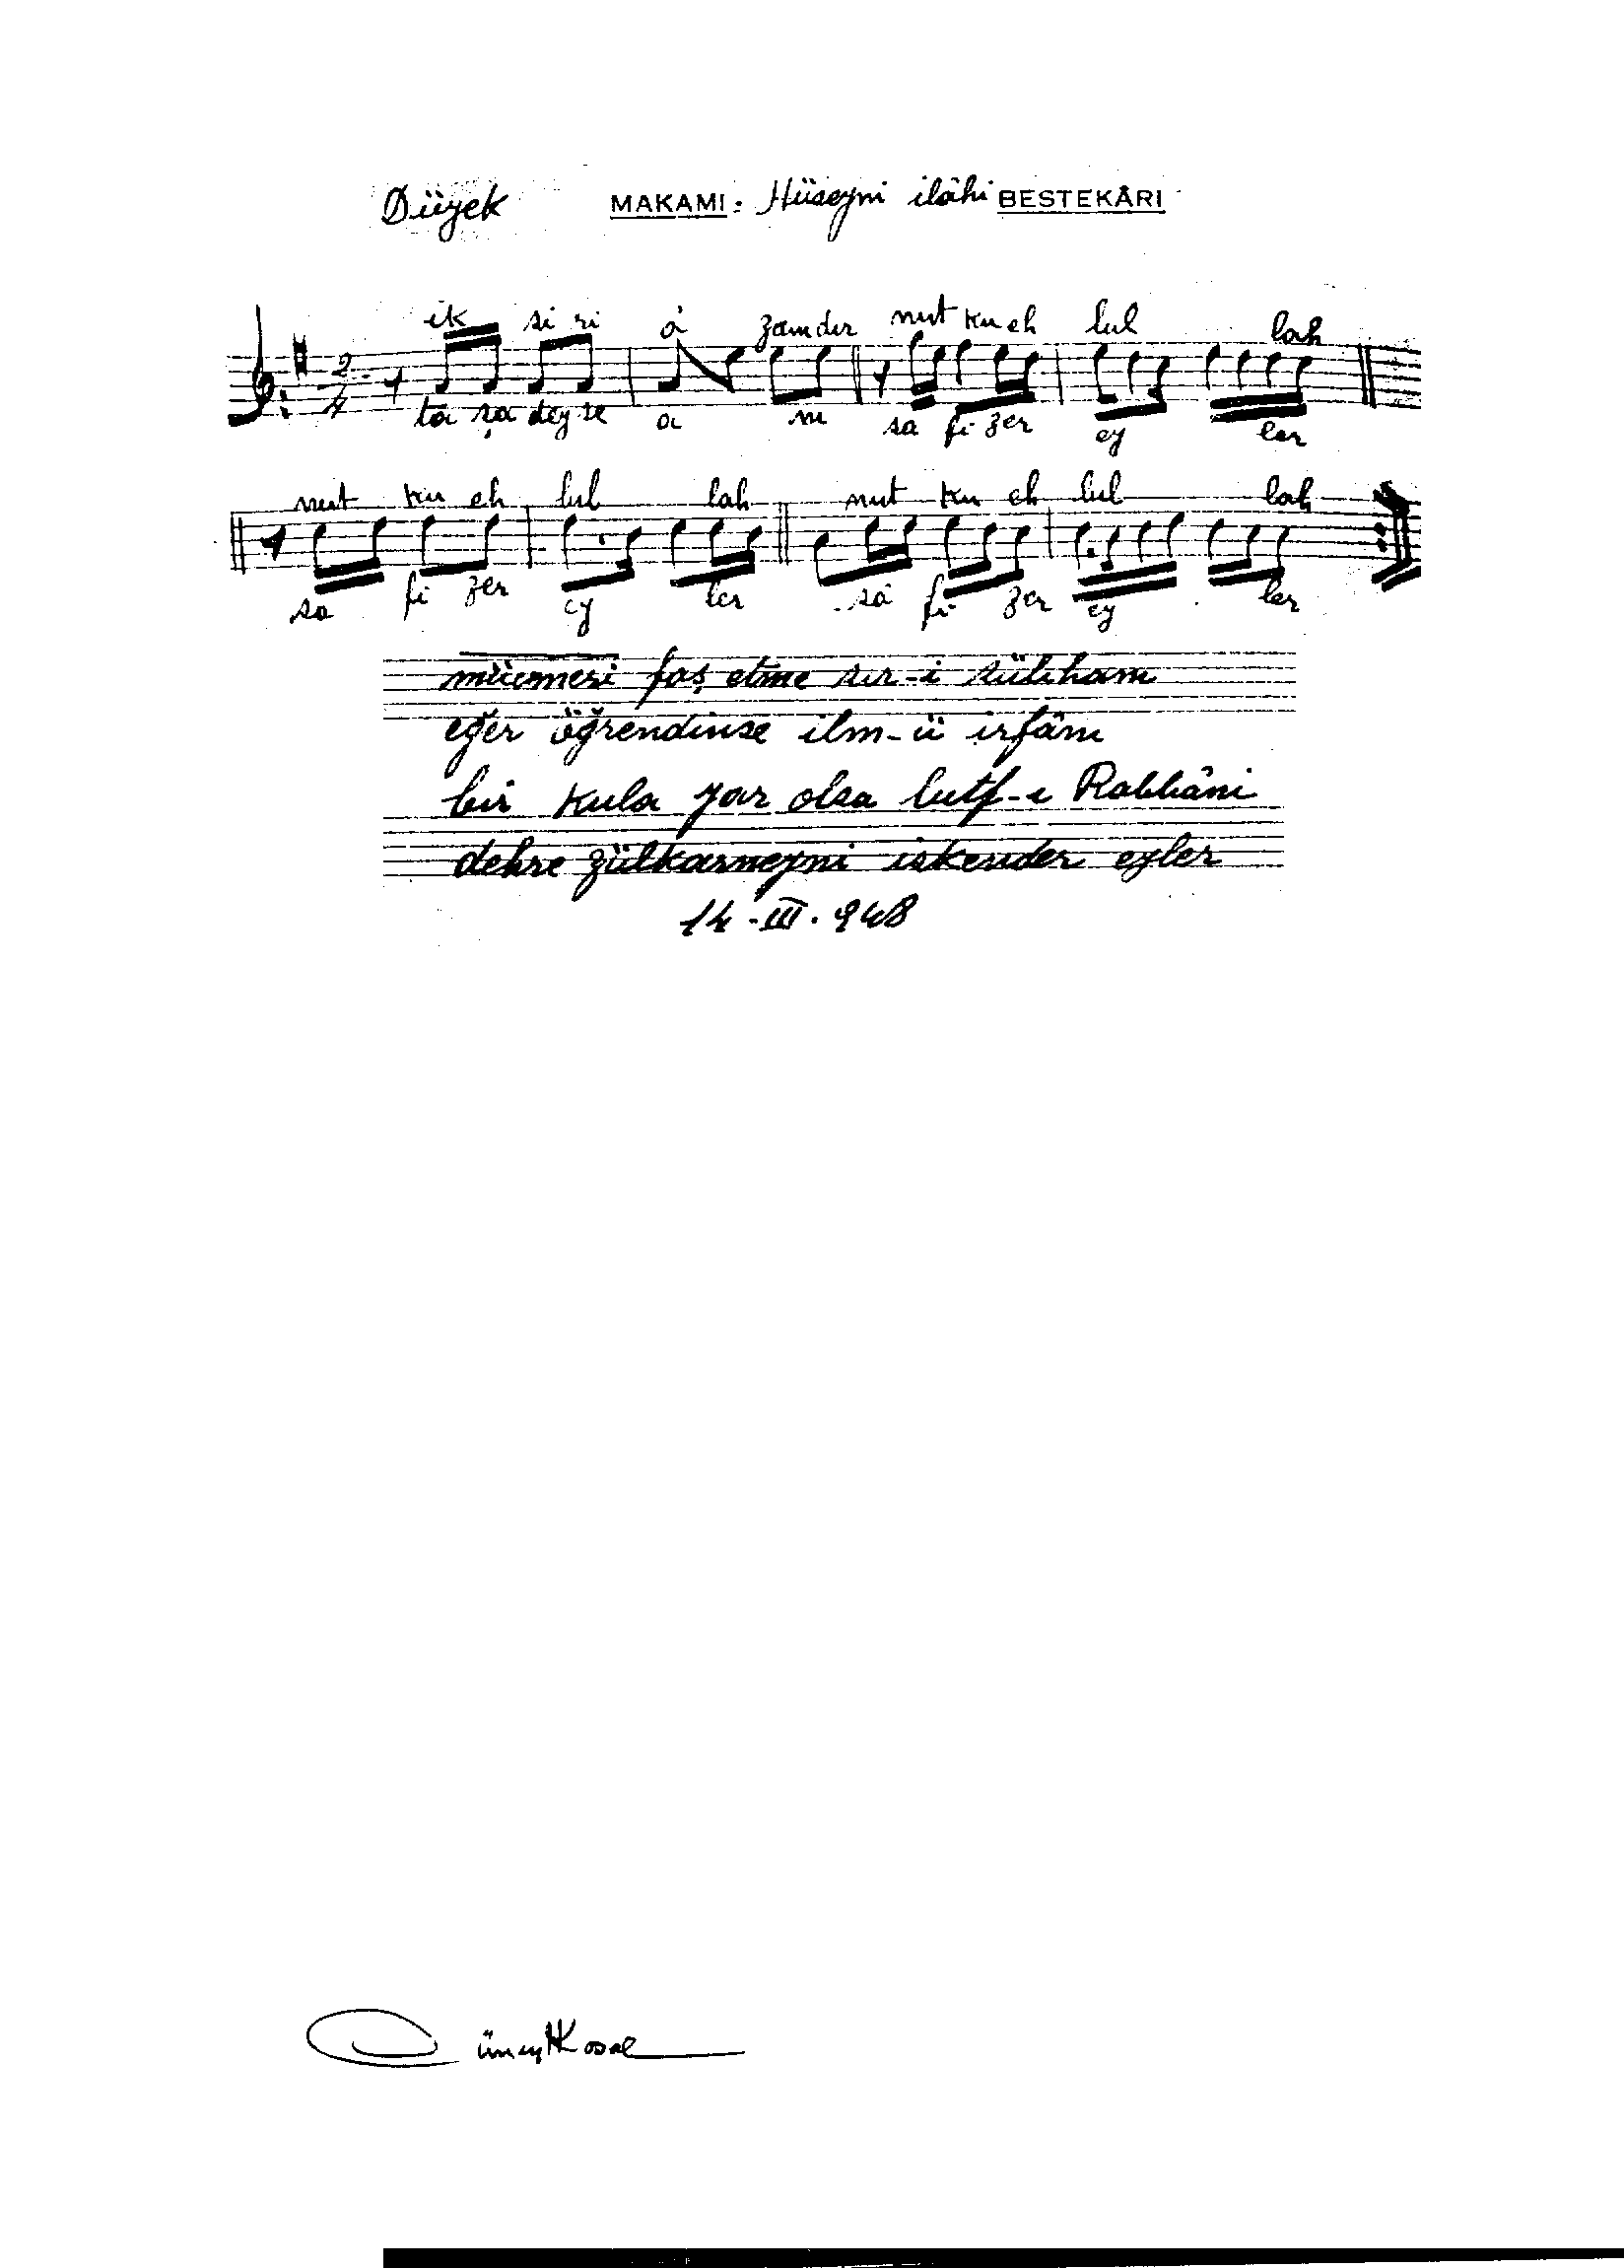 Düyek MAKAMI: Hüseyni ilâhi BESTEKÂRI
2/4
ik si ri â zamdır nut ku eh lul lah
ta şa deyse a nı sa fi zer ey ler
nut ku eh lul lah nut ku eh lul lah
sa fi zer ey ler sa fi zer ey ler
faş etme sır-i sübhanı
eğer öğrendinse ilm-ü irfânı
bir kula yar olsa lutf-ı Rabbâni
dehre zülkarneyni iskender eyler
14-III.948
Cüneyt Kosal